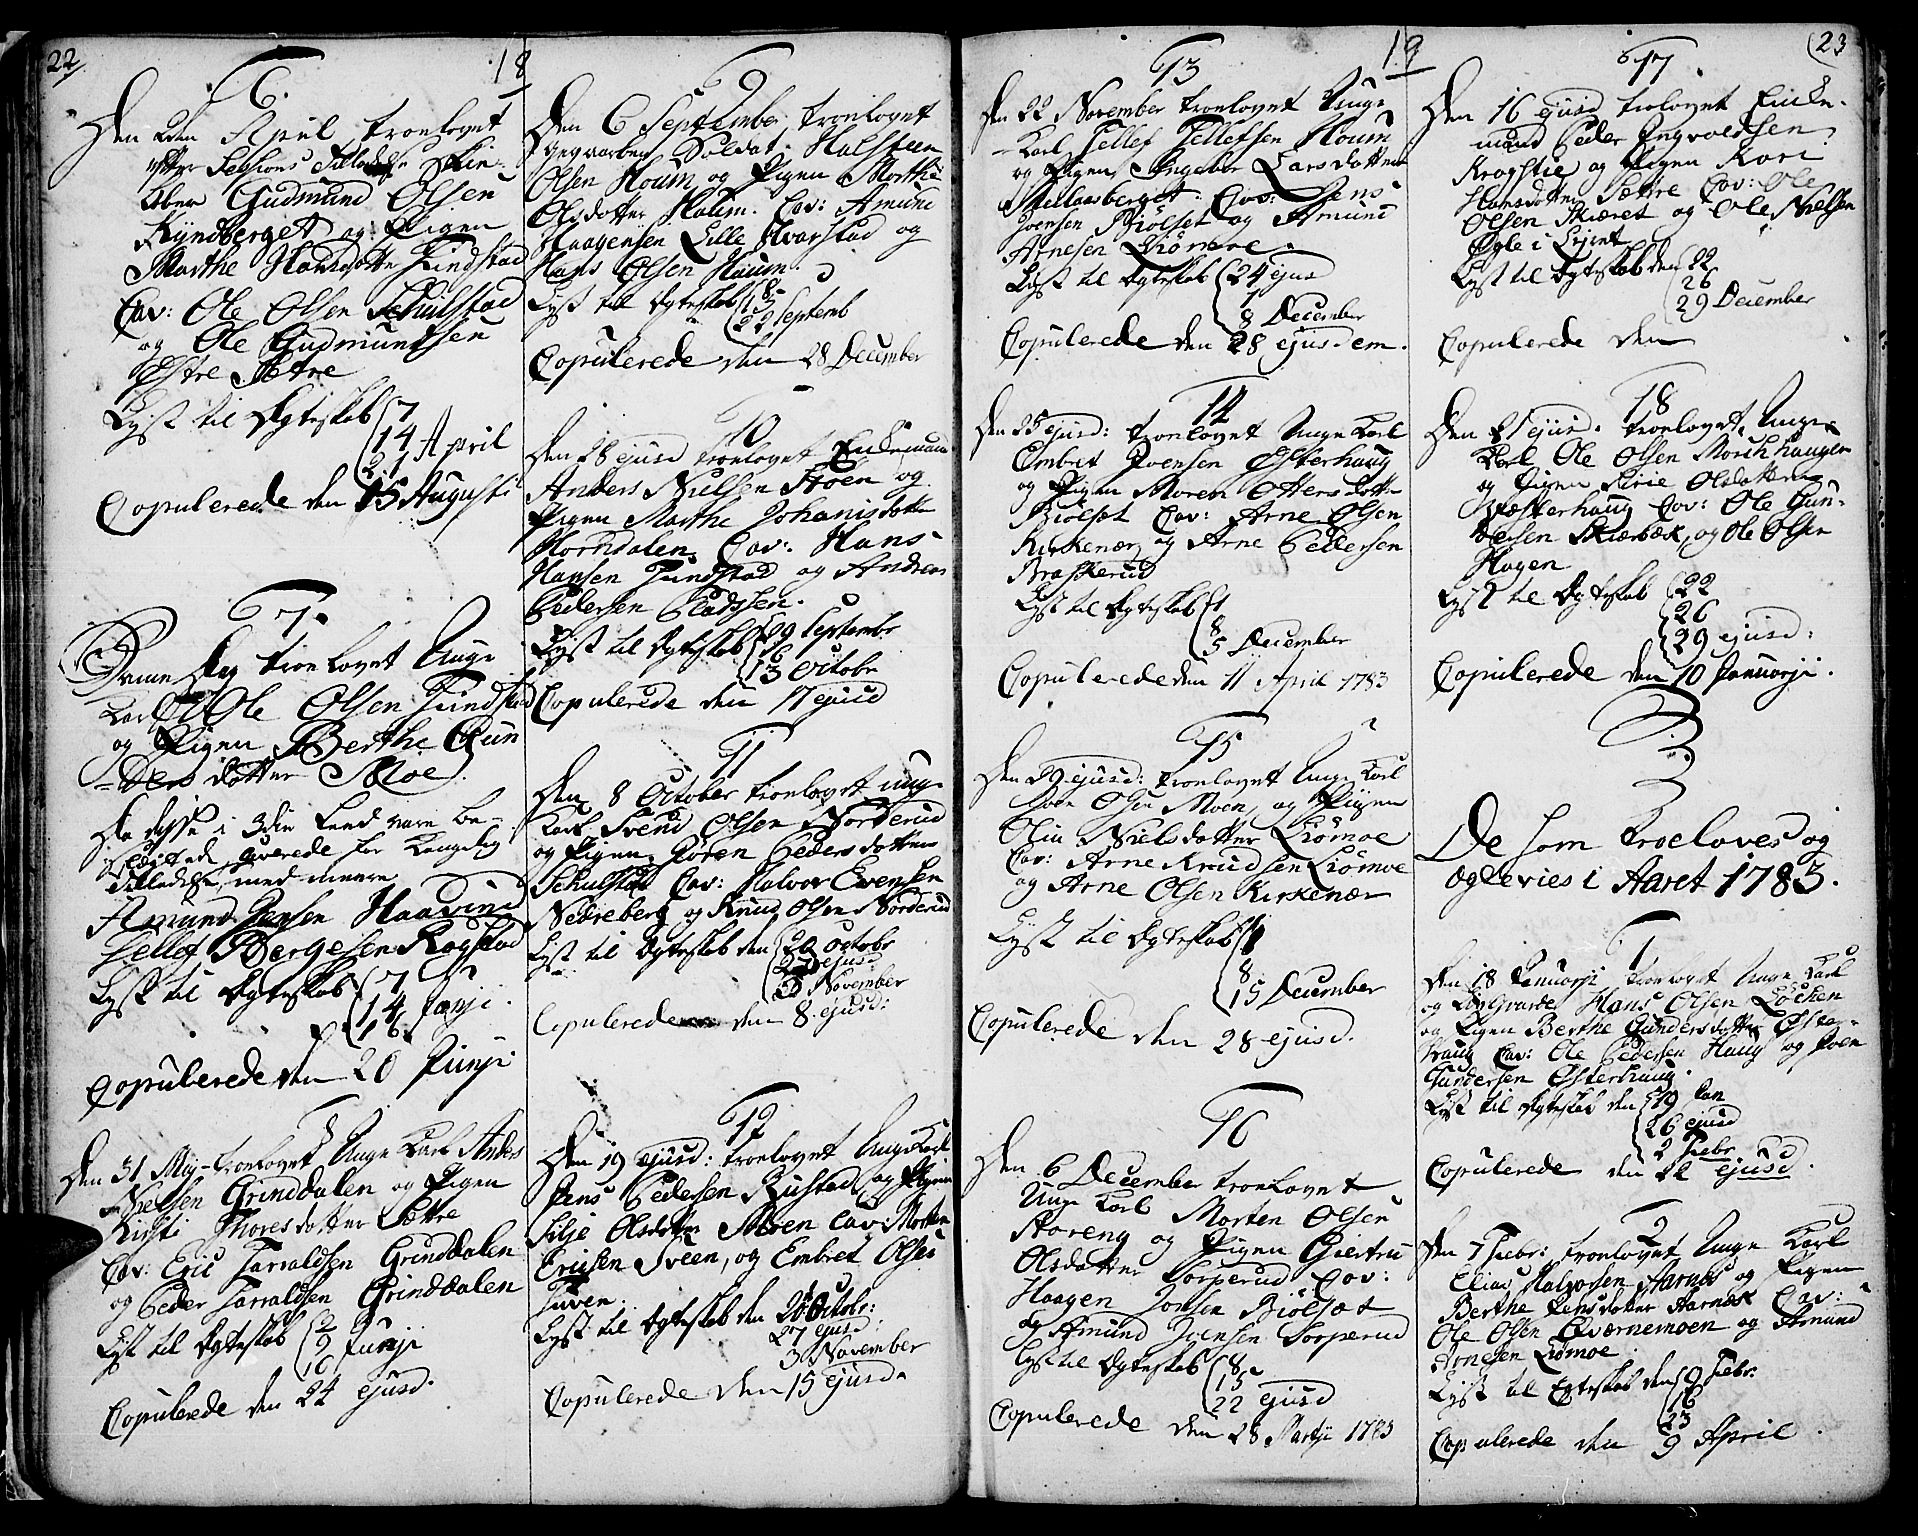 22
18
6.
Den 2den April trolovet
efter Sessions Tilladelse Skin-
Ober Gudmund Olsen
Kyndberget og Pigen
Marthe Hansdotter Tundstad
Cav: Ole Olsen Schulstad
og Ole Gudmundsen
Estre Sætre
Lyst til Ægteskab 7
14 April
21
Copulerede den 15 Augusti
7.
Samme Dag trolovet Unge
Karl Ole Olsen Tundstad
og Pigen Berthe Gun
ders dotter Moe.
Da disse i 3die Leed vare be-
slægtede, leverede for Kongelig
Tilladelse, med meere
Amund Jensen Haavind
Tellef Bergesen Rogstad
Lyst til Ægteskab 7
14 Junji
16
Copulerede den 20 Junji
8
Den 31 Maj trolovet Unge Karl Anders
Nielsen Grinddalen og Pigen
Kirsti Thoresdotter Sætre
Cav: Eric Tarraldsen Grinddalen
og Peder Tarraldsen Grinddalen
Lyst til Ægteskab 2
9 Junji
16
Copulerede den 24 ejusd.
9
Den 6 September trolovet
Soldat Halsteen
Olsen Houm og Pigen Marthe
Olsdotter Houm. Cav: Amund
Haagensen Lille Hvarstad og
Hans Olsen Houm.
Lyst til Ægteskab 8
15
22 Septemb
Copulerede den 28 December
10
Den 28 ejusd trolovet Enkemand
Anders Nielsen Støen og
Pigen Marthe Johanisdotter
Horndalen, Cav: Hans
Hansen Tundstad og Andreas
Pedersen Pladssen.
Lyst til Ægteskab 29 Septembr
6
13 Octobr
Copulerede den 17 ejusd
11
Den 8 October trolovet ung
Karl Svend Olsen Norderud
og Pigen Gøren Pedersdotter
Schulstad Cav: Halvor Evensen
Nebreberg og Knud Olsen Norderud
Lyst til Ægteskab den 20 Octobr
27 ejusd
3 November
Copulerede den 8 ejusd:
12
Den 19 ejusd: trolovet Unge Karl
Jens Pedersen Rustad og Pigen
Silje Olsdotter Steren Cav: Morten
Ericsen Sveen, og Embret Olsen
Tuven.
Lyst til Ægteskab den 20 Octobr:
27 ejusd:
3 November
Copulerede den 15 ejusd.
19
(23
13
Den 22 November trolovet Unge
Karl Tellef Tellefsen Houm
og Pigen Ingebor Larsdotter
Skellaasberget. Cav: Jens
Joensen Biølset og Amund
Arnesen Liømoe.
Lyst til Ægteskab 24 ejusd
1
8 December
Copulerede den 28 ejusdem.
14
Den 25 ejusd: trolovet Unge Karl
Embret Joensen Østerhaug
og Pigen Maren Ottersdotter
Biølset Cav: Arne Olsen
Kirkenær og Arne Pedersen
Braskerud
Lyst til Ægteskab 1
8
15 December
Copulerede den 11 April 1783
15
Den 29 ejusd: trolovet Unge Karl
Joen Olsen Moen, og Pigen
Olia Nielsdotter Liømoe
Cav: Arne Knudsen Liømoe
og Arne Olsen Kirkenær
Lyst til Ægteskab 1
8
15 December
Copulerede den 28 ejusd.
16
Den 6 December trolovet
Unge Karl Morten Olsen
Storeng og Pigen Giertru
Olsdotter Sorperud Cav:
Haagen Jonsen Biølset
og Amund Joensen Sorperud
Lyst til Ægteskab 8
15
22 ejusd
Copulerede den 28 Martji 1783
17.
Den 16 ejusd trolovet Enke-
mand Peder Ingvoldsen
Krogstie og Pigen Kari
Hansdotter Sætre Cav: Ole
Olsen Skiæret og Ole Nielsen
Øgle i Lijnt
Lyst til Ægteskab den 22
26
29 December
Copulerede den
18
Den 21 ejusd. trolovet Unge
Karl Ole Olsen Morchhaugen
og Pigen Sirie Olsdotter
Wæsterhaug Cav: Ole Gun-
dersen Skiærbek, og Ole Olsen
Hagen
Lyst til Ægteskab 22
26
29 ejusd:
Copulerede den 10 Januarji.
De som troeloves og
ægtevies i Aaret 1783.
1
Den 18 Januarji trolovet Unge Karl
og Hans Olsen Løcken
og Pigen Berthe Gundersdotter Øster-
haug Cav: Ole Pedersen Haug og Joen
Gundersen Østerhaug.
Lyst til Ægteskab den 19 Jan
26 ejusd
2 Febr
Copulerede den 22 ejusd.
2
Den 7 Febr: trolovet Unge Karl
Elias Halvorsen Aarnes og Pigen
Berthe Jensdotter Aarnes Cav:
Ole Olsen Qværnemoen og Amund
Arnesen Liømoe
Lyst til Egteskab den 9 Febr:
16
23
Copulerede den 9 April.